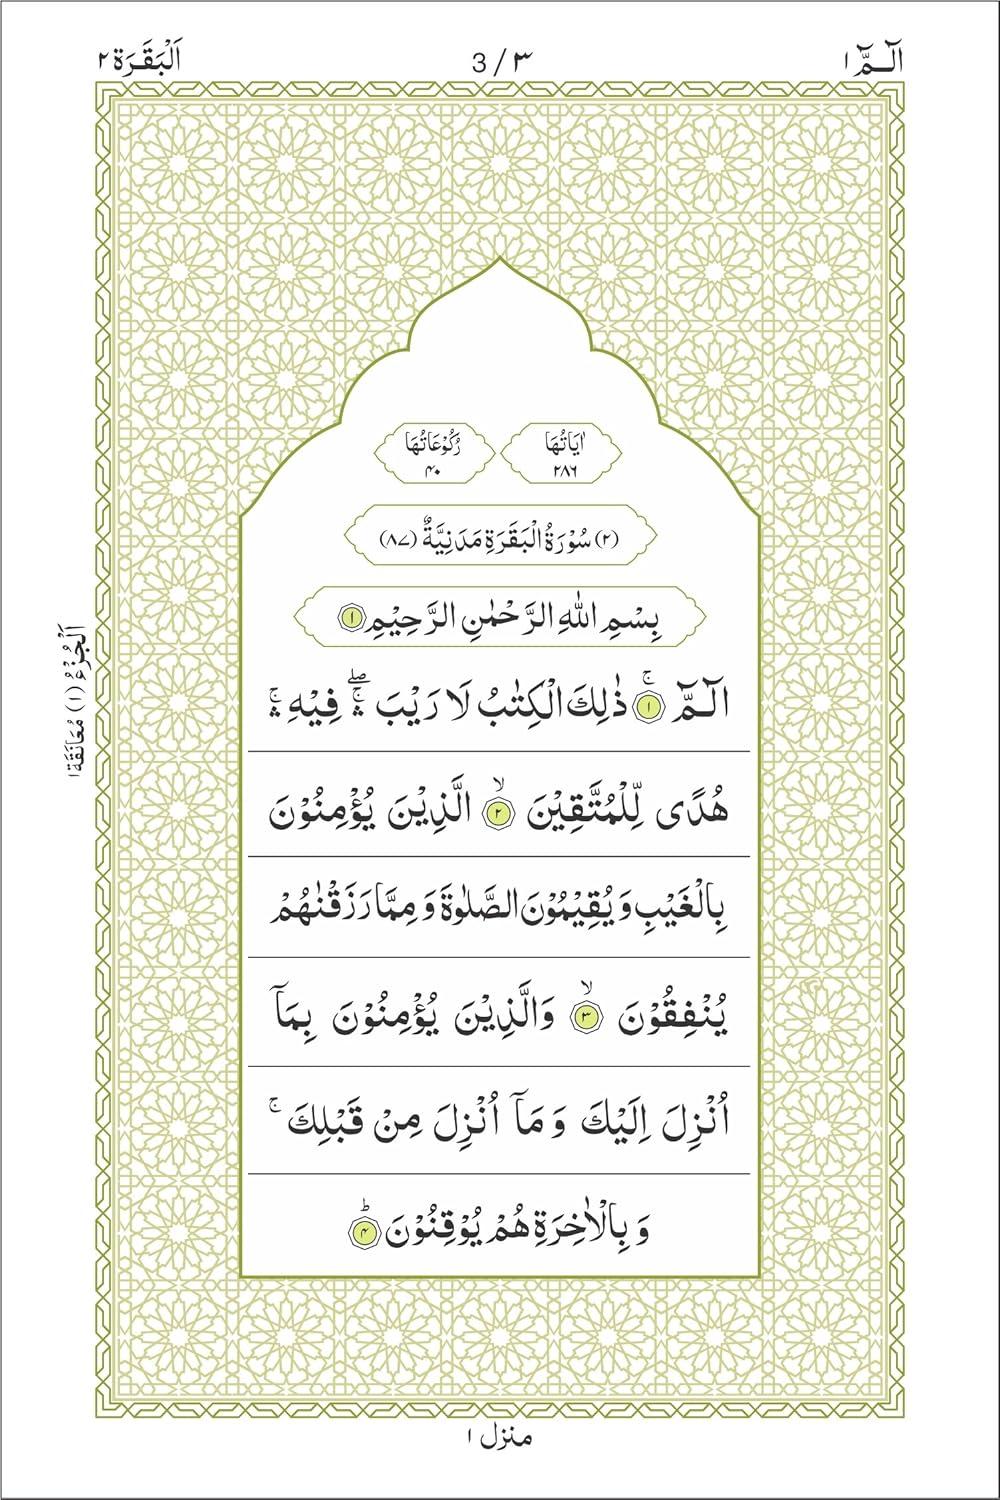 الٓمّٓ ١
3 / ٣
اَلْبَقَرَة ٢
اٰيَاتُهَا
٢٨٦
رُكُوْعَاتُهَا
٤٠
(٢) سُوْرَةُ الْبَقَرَةِ مَدَنِيَّةٌ (٨٧)
بِسْمِ اللّٰهِ الرَّحْمٰنِ الرَّحِيْمِ ١
الٓمّٓ ۚ ١ ذٰلِكَ الْكِتٰبُ لَا رَيْبَ ۛۖ ۚ فِيْهِ ۛۚ
هُدًى لِّلْمُتَّقِيْنَ ۙ ٢ الَّذِيْنَ يُؤْمِنُوْنَ
بِالْغَيْبِ وَيُقِيْمُوْنَ الصَّلٰوةَ وَمِمَّا رَزَقْنٰهُمْ
يُنْفِقُوْنَ ۙ ٣ وَالَّذِيْنَ يُؤْمِنُوْنَ بِمَآ
اُنْزِلَ اِلَيْكَ وَمَآ اُنْزِلَ مِنْ قَبْلِكَ ۚ
وَبِالْاٰخِرَةِ هُمْ يُوْقِنُوْنَ ؕ ٤
اَلْجُزْءُ (١) مُعَانَقَة ١
منزل ١